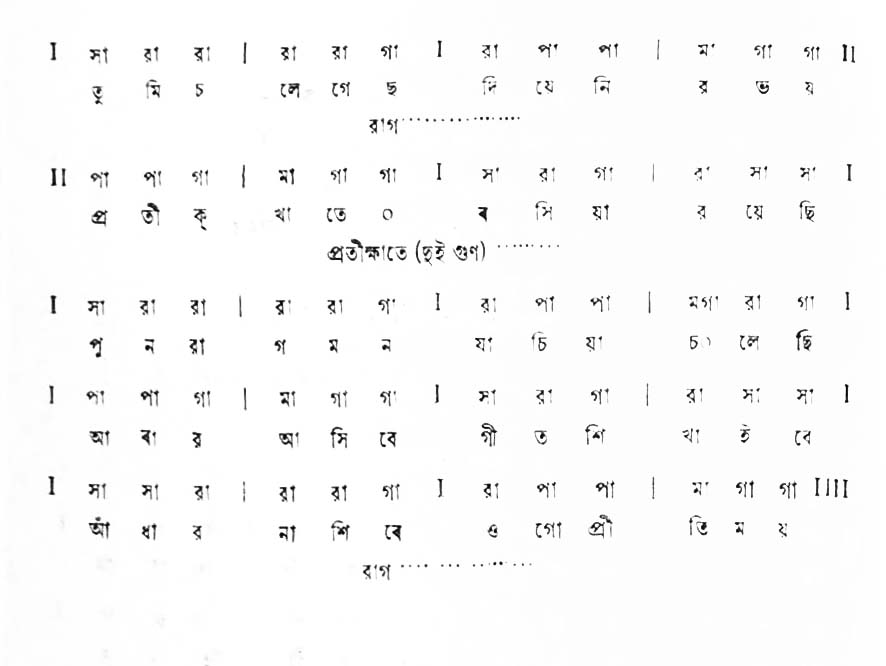 I সা রা রা | রা রা গা I রা পা পা | মা গা গা II
তু মি চ লে গে ছ দি য়ে নি র ভ য়
রাগ..................
II পা পা গা | মা গা গা I সা রা গা | রা সা সা I
প্র তী ক্ খা তে ০ ব সি য়া র য়ে ছি
প্রতীক্ষাতে (দুই গুণ) .........
I সা রা রা | রা রা গা I রা পা পা | মগা রা গা I
পু ন রা গ ম ন যা চি য়া চ০ লে ছি
I পা পা গা | মা গা গা I সা রা গা | রা সা সা I
আ বা র আ সি বে গী ত শি খা ই বে
I সা সা রা | রা রা গা I রা পা পা | মা গা গা IIII
আঁ ধা র না শি বে ও গো প্রী তি ম য়
রাগ .... ... .........